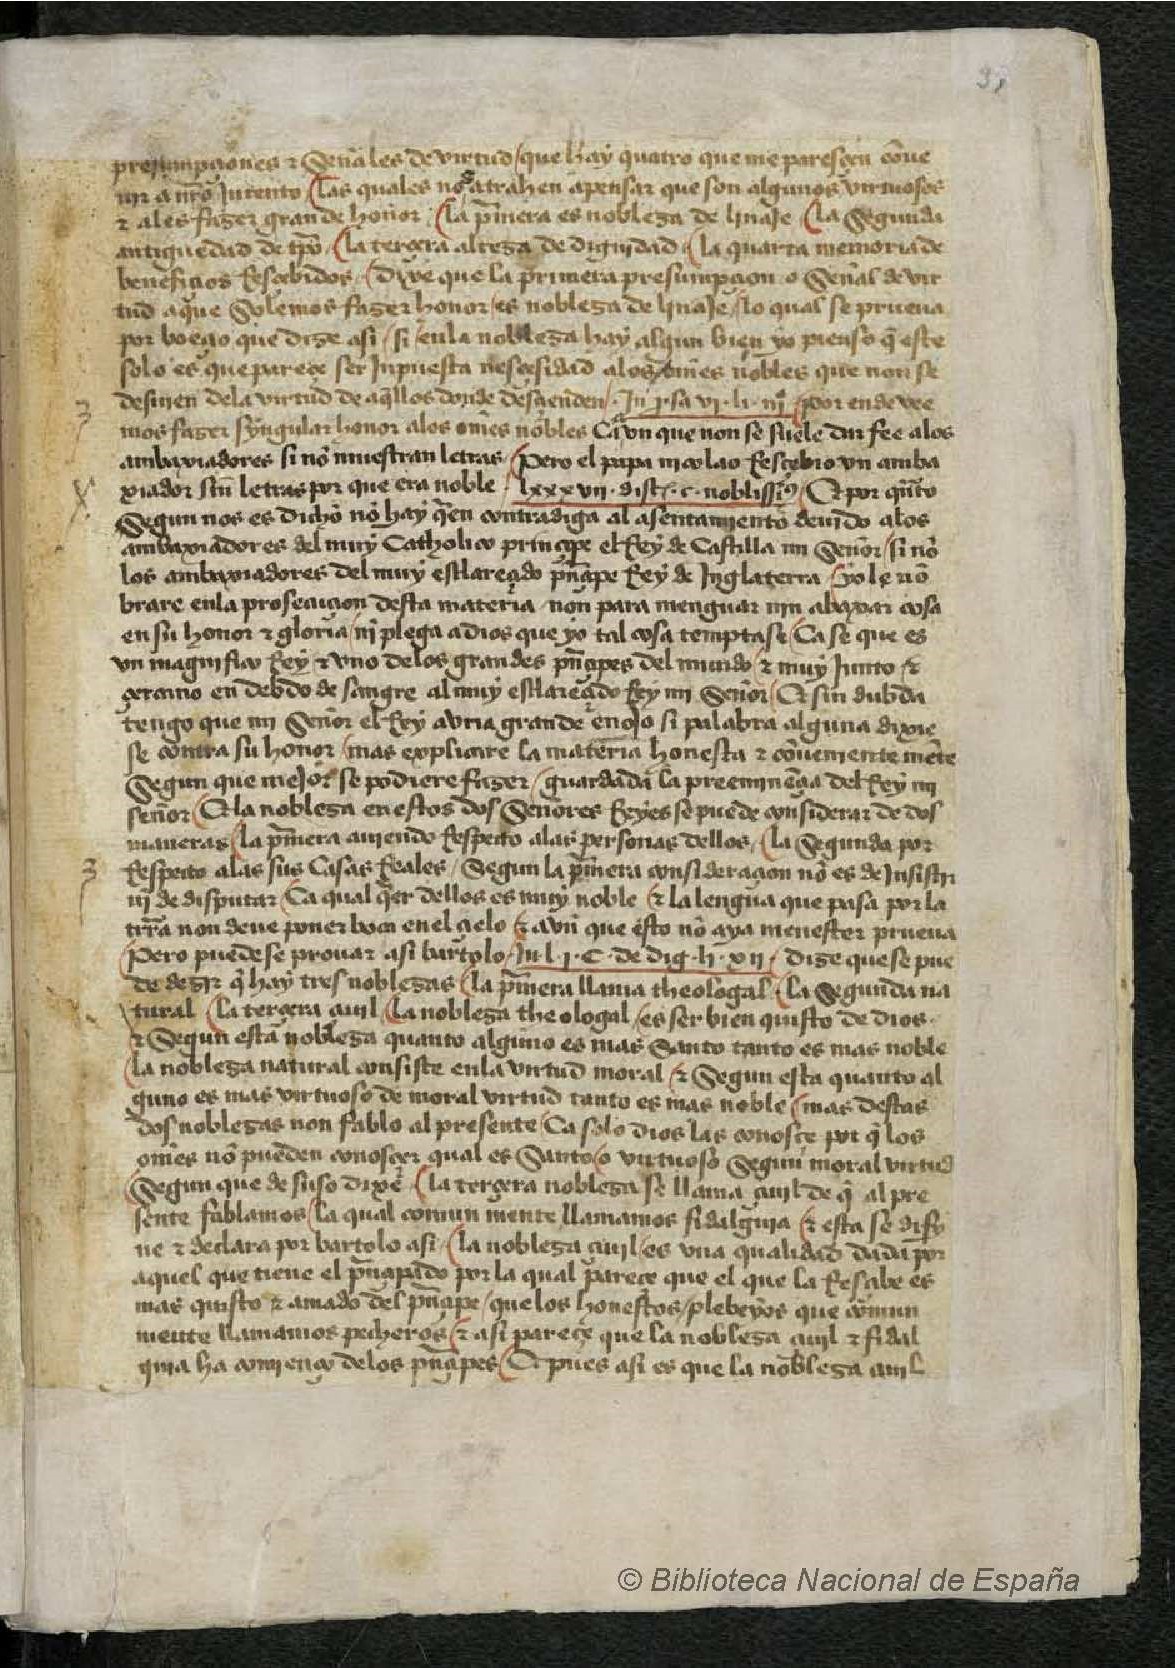 3
presumpçiones ⁊ Señales de virtud / que hay quatro que me paresçen cõue
nir a nr̃o Intento / las quales nos atrahen a pensar que son algunos virtuosos
⁊ a les fazer grande honor / la p̃mera es nobleza de linaje / la Segunda
antiguedad de tp̃o / la terçera alteza de dignidad / la quarta memoria de
benefiçios Resçebidos / dixe que la primera presumpçion o Señal de vir
tud a que Solemos fazer honor / es nobleza de linaje / lo qual se prueua
por boeçio que dize asi / si en la nobleza hay algun bien yo pienso q̃ este
solo es que pareçe ser Inpuesta nesçesidad a los om̃es nobles que non se
desuien de la virtud de aq̃llos donde desçienden / In p̃sa vi. li. iijº / por ende vee
mos fazer syngular honor a los om̃es nobles Ca avn que non se suele dar fee a los
ambaxiadores si nõ muestran letras / Pero el papa nicolao Resçebio vn amba
xiador sin letras por que era noble / lxxxvii. dist̃. c. nobliss̃i9 / Et por q̃nto
Segun nos es dicho nõ hay q̃en contradiga al asentamiento deuido a los
ambaxiadores del muy Catholico prinçipe el Rey de Castilla mi Señor / si nõ
los ambaxiadores del muy esclareçido p̃nçipe Rey de Inglaterra / yo le nõ
brare en la prosecuçion desta materia / non para menguar nin abaxar cosa
en su honor ⁊ gloria / ni plega a dios que yo tal cosa temptase / Ca se que es
vn magnifico Rey ⁊ vno de los grandes p̃nçipes del mundo ⁊ muy Junto ⁊
çercano en debdo de sangre al muy esclareçido Rey mi Señor / Et sin dubda
tengo que mi Señor el Rey avria grande enojo si palabra alguna dixie
se contra su honor / mas explicare la materia honesta ⁊ cõueniente mẽte
Segun que mejor se podiere fazer / guardada la preeminẽçia del Rey mi
señor / Et la nobleza en estos dos Señores Reyes se puede considerar de dos
maneras / la p̃mera auiendo Respecto a las personas dellos / la Segunda por
Respecto a las sus Casas Reales / Segun la p̃mera consideraçion nõ es de Insistir
ni de disputar / Ca qual q̃er dellos es muy noble ⁊ la lengua que pasa por la
trr̃a non deue poner boca en el çielo / ⁊ avn que esto nõ aya menester prueua
Pero puedese prouar asi bartolo / In. l. j. C. de dig. li. xii / dize que se pue
de dezir q̃ hay tres noblezas / la p̃mera llama theologal / la Segunda na
tural / la terçera çiuil / la nobleza theologal / es ser bien quisto de dios.
⁊ Segun esta nobleza quanto alguno es mas Santo tanto es mas noble
la nobleza natural consiste en la virtud moral / ⁊ Segun esta quanto al
guno es mas virtuoso de moral virtud tanto es mas noble / mas destas
dos noblezas non fablo al presente / Ca solo dios las conosçe por q̃ los
om̃es nõ pueden conosçer qual es Santo / o virtuoso Segun moral virtud
Segun que de suso dixe / la terçera nobleza se llama çiuil de q̃ al pre
sente fablamos / la qual comun mente llamamos fidalguia / ⁊ esta se difi
ne ⁊ declara por bartolo asi / la nobleza çiuil / es vna qualidad dada por
aquel que tiene el p̃nçipado por la qual pareçe que el que la Resçibe es
mas quisto ⁊ amado del p̃nçipe / que los honestos / plebeyos que comun
mente llamamos pecheros / ⁊ asi pareçe que la nobleza çiuil ⁊ fidal
guia ha comienço de los p̃nçipes / Et pues asi es que la nobleza çiuil
© Biblioteca Nacional de España